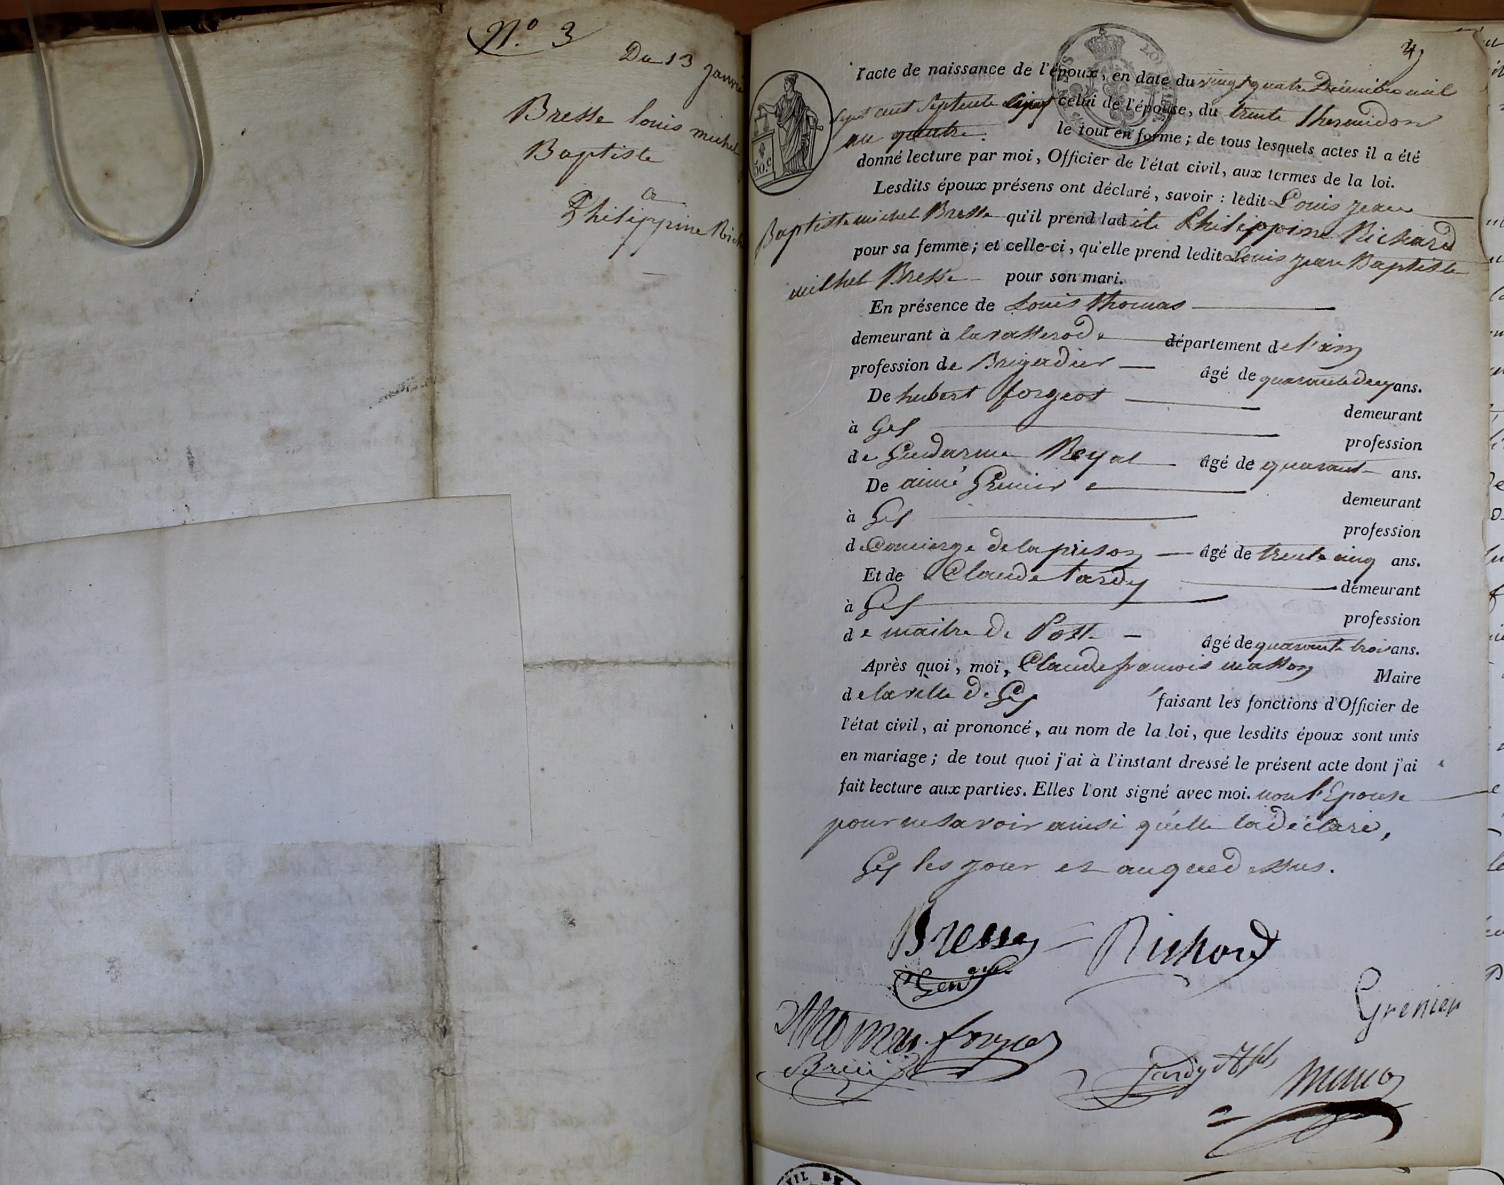 N.º 3
Du 13 janvier
Bresse louis michel
Baptiste
a
Philippine Rich
4
l'acte de naissance de l'époux, en date du vingt quatre Décembre mil
sept cent septente cinq celui de l'épouse, du trente thermidor
an quatre. le tout en forme; de tous lesquels actes il a été
donné lecture par moi, Officier de l'état civil, aux termes de la loi.
Lesdits époux présens ont déclaré, savoir : ledit Louis jean
Baptiste michel Bresse qu'il prend ladite Philippine Richard
pour sa femme; et celle-ci, qu'elle prend ledit Louis jean Baptiste
michel Bresse pour son mari.
En présence de Louis thomas
demeurant à département de l'ain
profession de Brigadier âgé de quarante deux ans.
De hubert forgeot demeurant
à Gex profession
de Gendarme Royal âgé de quarante ans.
De aimé Grenier demeurant
à Gex profession
de Concierge de la prison âgé de trente cinq ans.
Et de Claude tardy demeurant
à Gex profession
de maitre de Poste âgé de quarante trois ans.
Après quoi, moi, Claude francois Maire
de la ville de Gex faisant les fonctions d'Officier de
l'état civil, ai prononcé, au nom de la loi, que lesdits époux sont unis
en mariage; de tout quoi j'ai à l'instant dressé le présent acte dont j'ai
fait lecture aux parties. Elles l'ont signé avec moi. non l'Epouse
pour ne savoir ainsi qu'elle la déclaré,
Gex les jour et an que dessus.
Bresse Richard
Gen
Grenier
Thomas forgeot
Brii
tardy
50.c